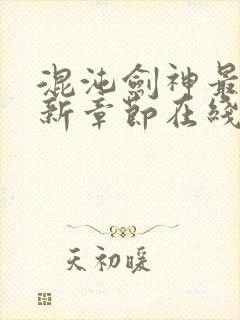 混沌劍神最
新章節在綫
天初暖